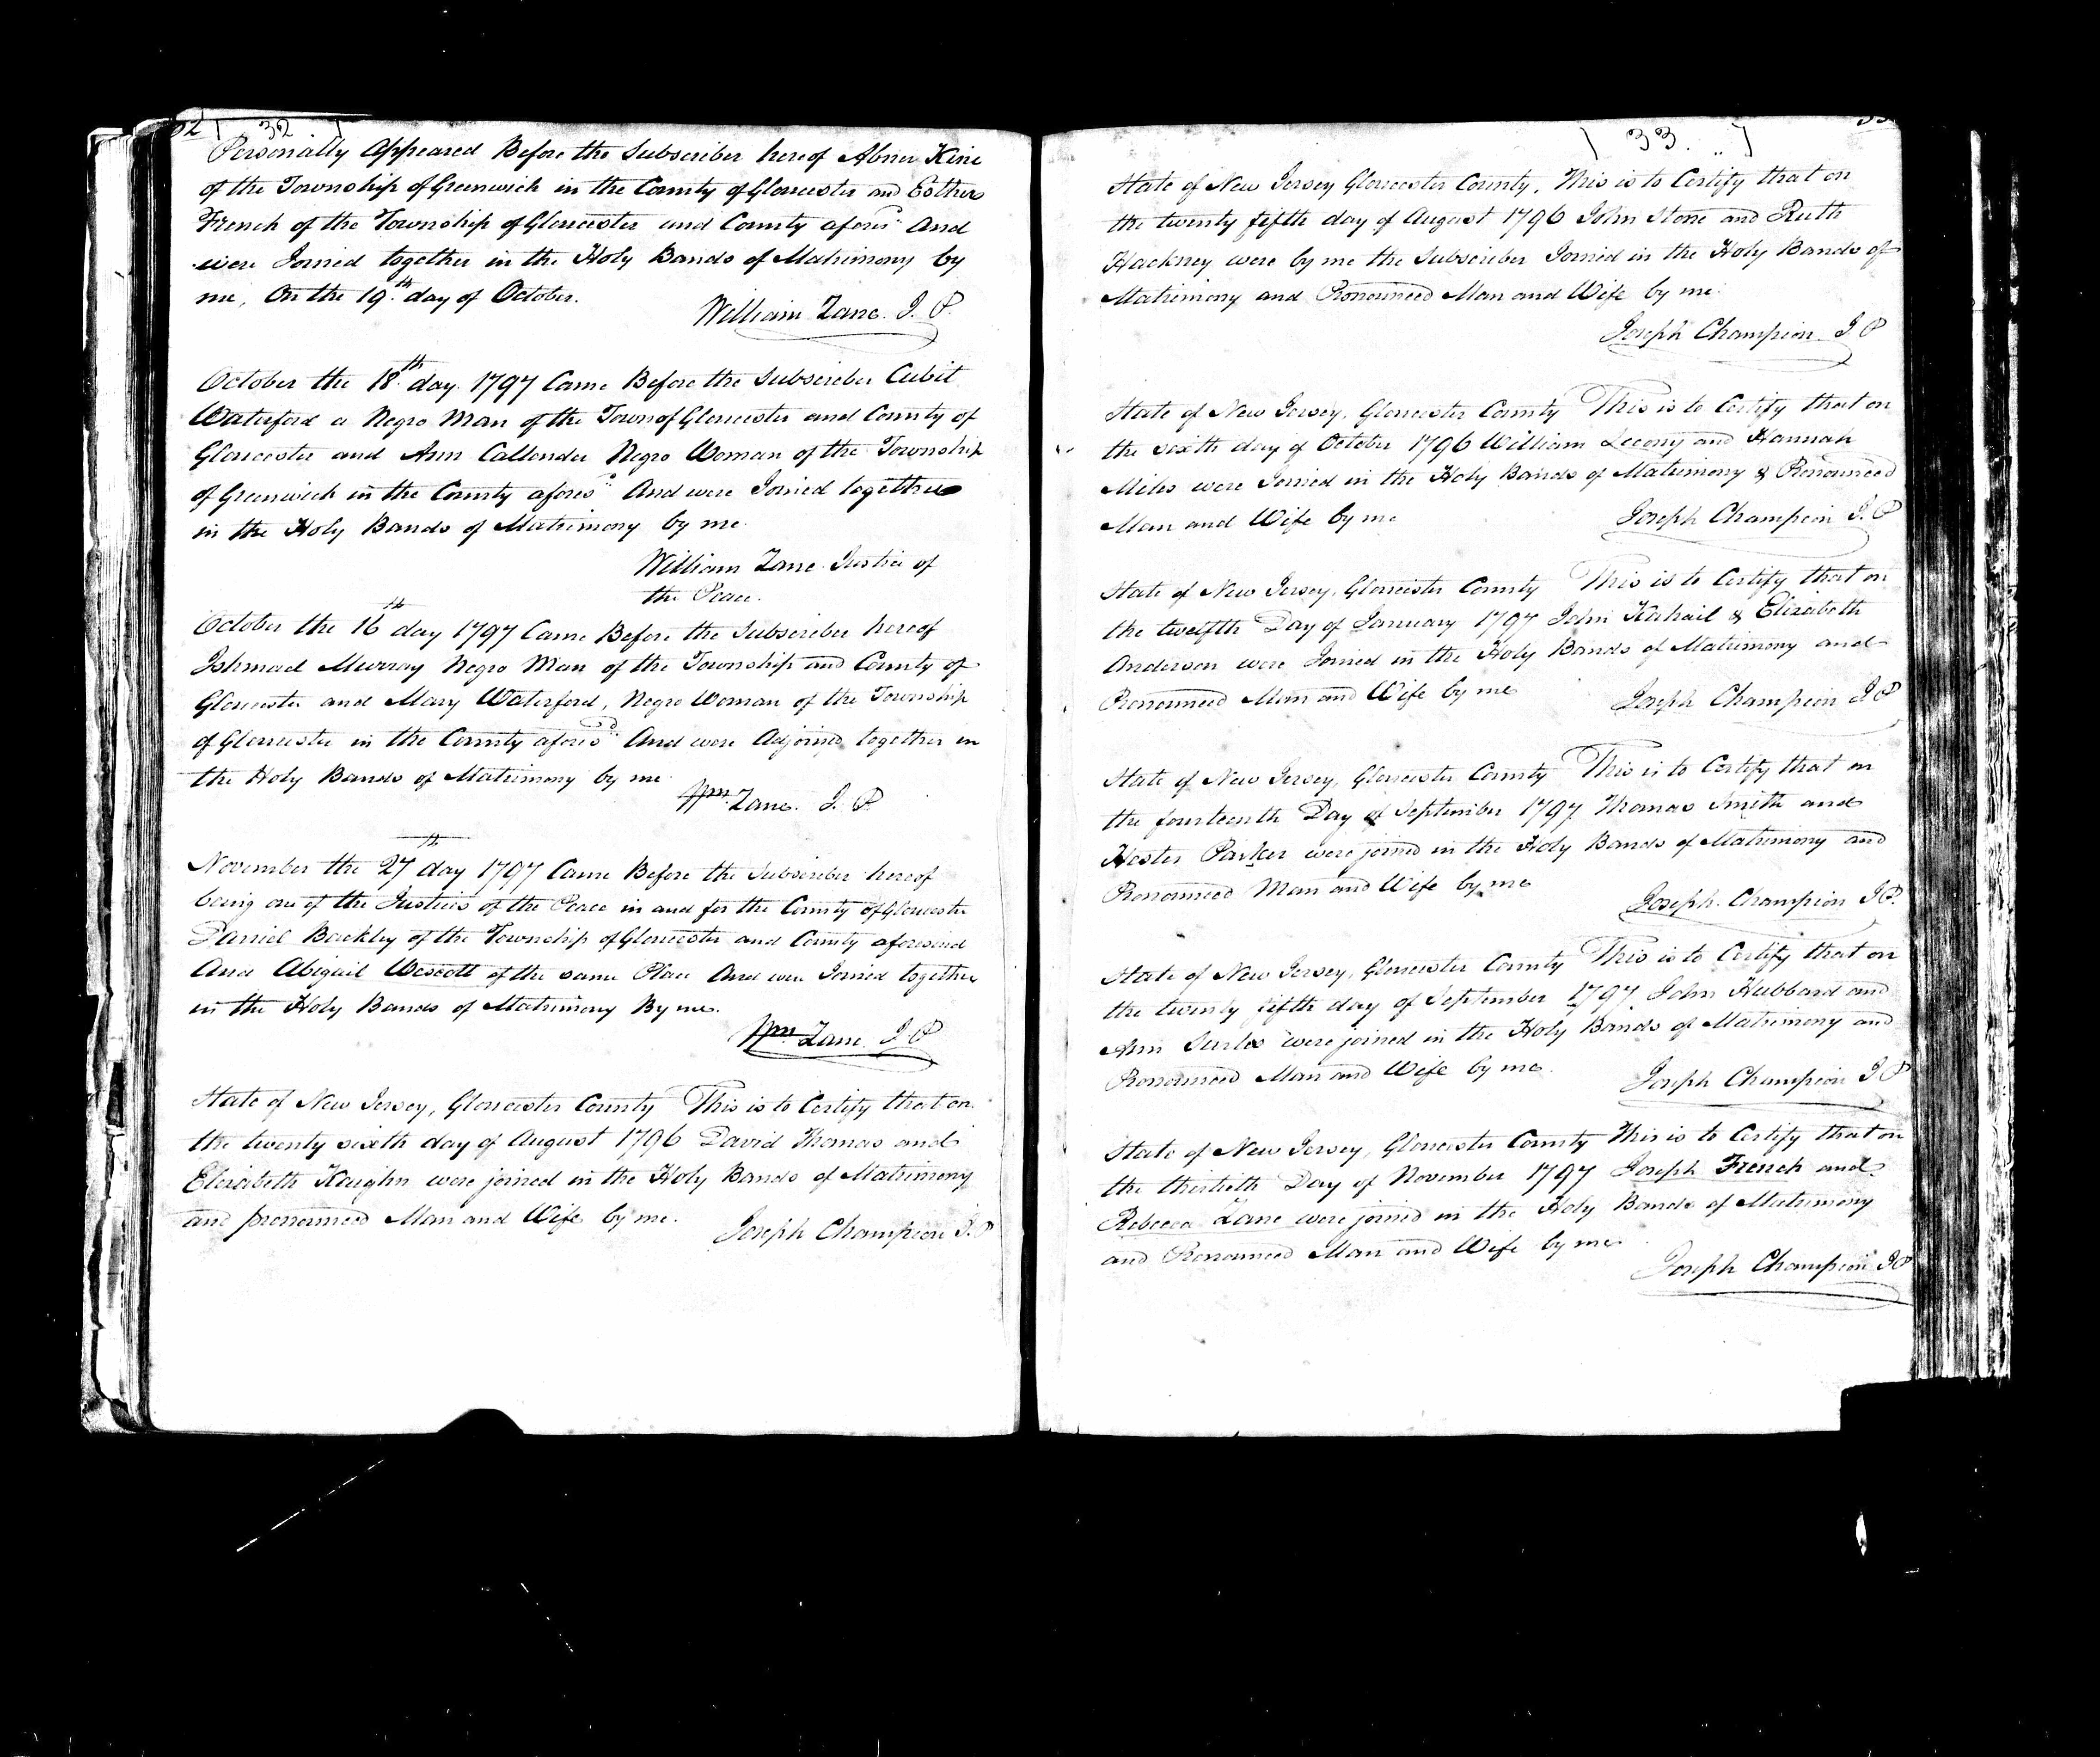 32
[ 32. ]
Personally Appeared Before the Subscriber hereof Abner Kine
of the Township of Greenwich in the County of Gloucester and Esther
French of the Township of Gloucester and County afores.d And
were Joined together in the Holy Bands of Matrimony by
me, On the 19.th day of October.
William Zane. J. P.
October the 18.th day. 1797 Came Before the Subscriber Cubit
Waterford a Negro Man of the Town of Gloucester and County of
Gloucester and Ann Callender Negro Woman of the Township
of Greenwich in the County afores.d And were Joined together
in the Holy Bands of Matrimony by me.
William Zane Justice of
the Peace.
October the 16th day 1797 Came Before the Subscriber hereof
Ishmael Murray Negro Man of the Township and County of
Gloucester and Mary Waterford, Negro Woman of the Township
of Gloucester in the County afores.d And were Adjoined together in
the Holy Bands of Matrimony by me
Wm. Zane. J. P.
November the 27th day 1797 Came Before the Subscriber hereof
being one of the Justices of the Peace in and for the County of Gloucester
Daniel Backley of the Township of Gloucester and County aforesaid
And Abigail Wescott of the same Place And were Joined together
in the Holy Bands of Matrimony By me.
Wm. Zane. J. P.
State of New Jersey, Gloucester County This is to Certify that on
the twenty sixth day of August 1796 David Thomas and
Elizabeth Kaighn were joined in the Holy Bands of Matrimony
and pronounced Man and Wife by me.
Joseph Champion J. P
[ 33. ]
State of New Jersey Gloucester County, This is to Certify that on
the twenty fifth day of August 1796 John Stone and Ruth
Hackney were by me the Subscriber Joined in the Holy Bands of
Matrimony and Pronounced Man and Wife by me.
Joseph Champion J. P
State of New Jersey, Gloucester County This is to Certify that on
the sixth day of October 1796 William Lecony and Hannah
Miles were Joined in the Holy Bands of Matrimony & Pronounced
Man and Wife by me
Joseph Champion J. P
State of New Jersey, Gloucester County This is to Certify that on
the twelfth Day of January 1797 John & Elizabeth
Anderson were Joined in the Holy Bands of Matrimony and
Pronounced Man and Wife by me
Joseph Champion J P
State of New Jersey, Gloucester County This is to Certify that on
the fourteenth Day of September 1797 Thomas Smith and
Hester Parker were joined in the Holy Bands of Matrimony and
Pronounced Man and Wife by me
Joseph Champion J P.
State of New Jersey, Gloucester County This is to Certify that on
the twenty fifth day of September 1797 John Hubbard and
Ann were joined in the Holy Bands of Matrimony and
Pronounced Man and Wife by me.
Joseph Champion J P
State of New Jersey, Gloucester County This is to Certify that on
the thirtieth Day of November 1797 Joseph French and
Rebecca Zane were joined in the Holy Bands of Matrimony
and Pronounced Man and Wife by me
Joseph Champion J P